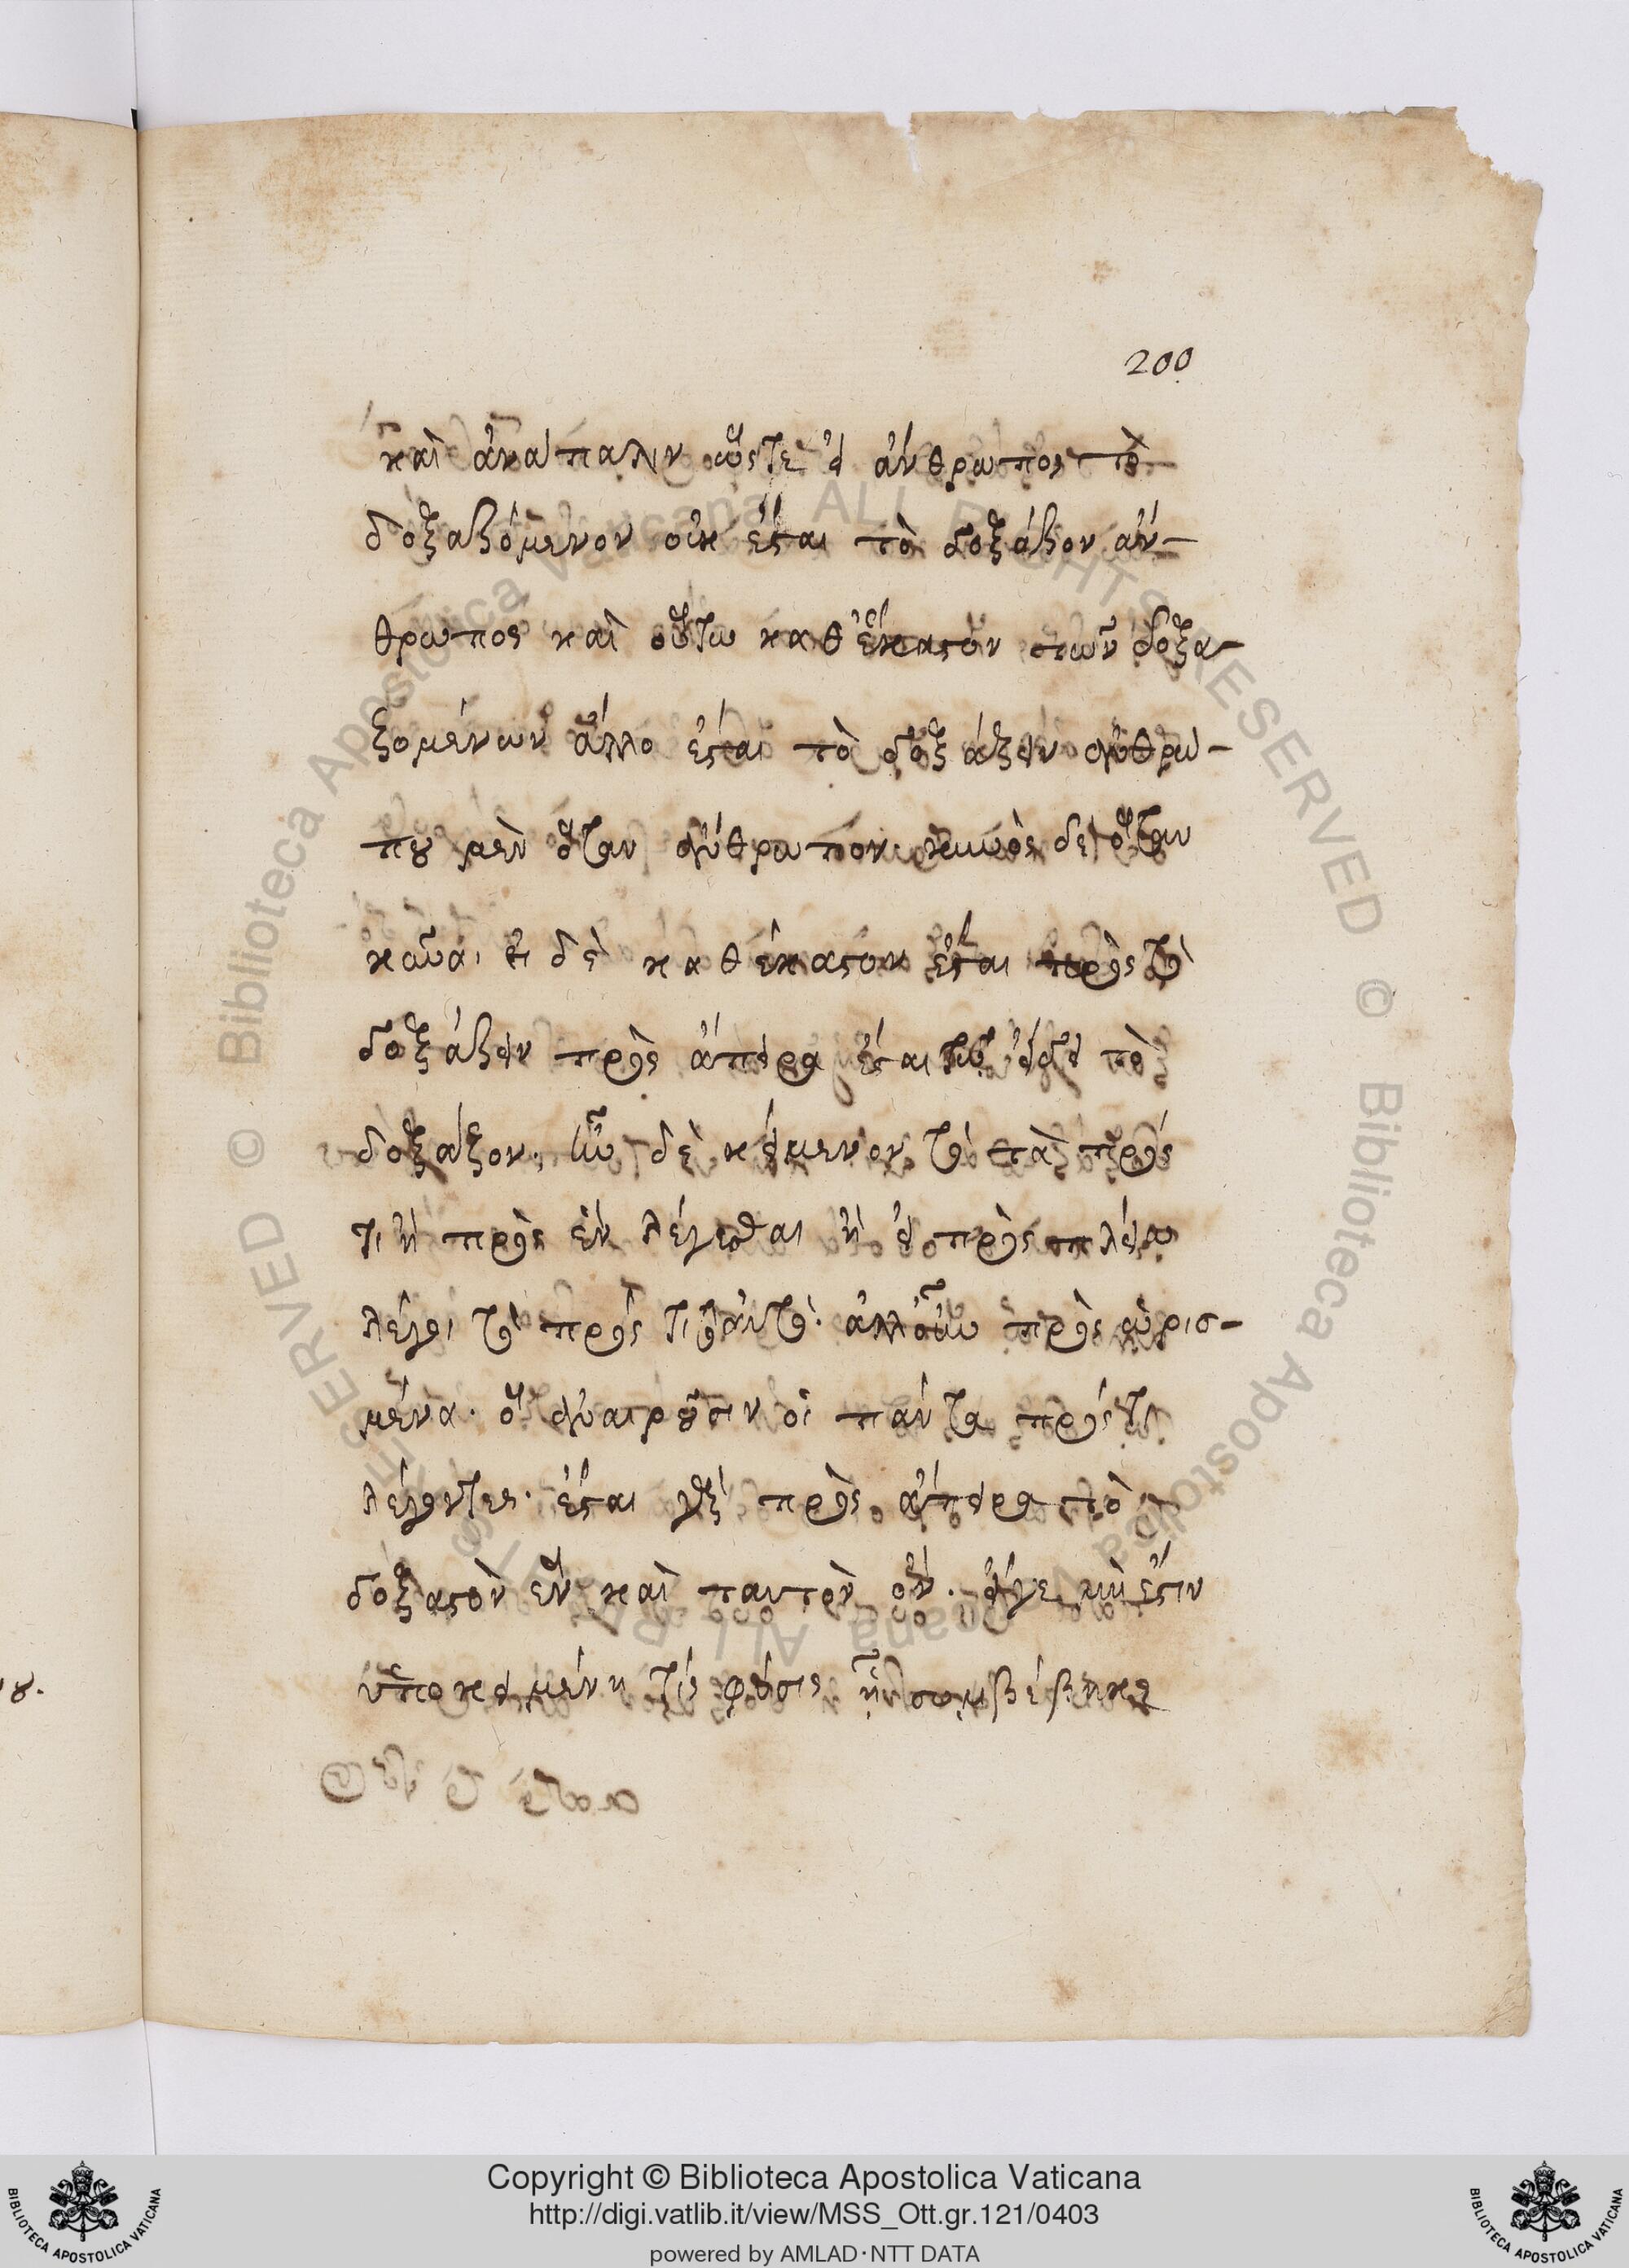 200
καὶ ἀνάπαλιν ὥστε εἰ ἄνθρωπος τὸ
δοξαζόμενον οὐκ ἔσται τὸ δοξάζον ἄν-
θρωπος καὶ οὕτω καθ' ἕκαστον τῶν δοξα-
ζομένων ἄλλο ἔσται τὸ δοξάζειν ἀνθρώ-
που μὲν ὅταν ἄνθρωπον κυνὸς δὲ ὅταν
κύνα. εἰ δὲ καθέκαστον ἔσται πρὸς τὸ
δοξάζειν πρὸς ἄπειρα ἔσται τῷ εἴδει τὸ
δοξάζον. ἦν δὲ κείμενον τὸ τὰ πρός
τι ἢ πρὸς ἓν λέγεσθαι ἢ εἰ πρὸς πλείω
λέγει τὸ πρός τι ὂν τὸ. ἀλλ' οὖν πρὸς ὡρισ-
μένα. ὃ ἀναιροῦσιν οἱ πάντα πρός τι
λέγοντες. ἔσται γὰρ πρὸς ἄπειρα τὸ
δοξαστὸν ἓν καὶ ταυτὸν ὄν. εἴγε μὴ ἔστιν
ὑποκειμένη τις φύσις ᾗ συμβέβηκε
ου.
Copyright © Biblioteca Apostolica Vaticana
http://digi.vatlib.it/view/MSS_Ott.gr.121/0403
powered by AMLAD·NTT DATA
BIBLIOTECA APOSTOLICA VATICANA
BIBLIOTECA APOSTOLICA VATICANA
© Biblioteca Apostolica Vaticana ALL RIGHTS RESERVED © Biblioteca Apostolica Vaticana ALL RIGHTS RESERVED